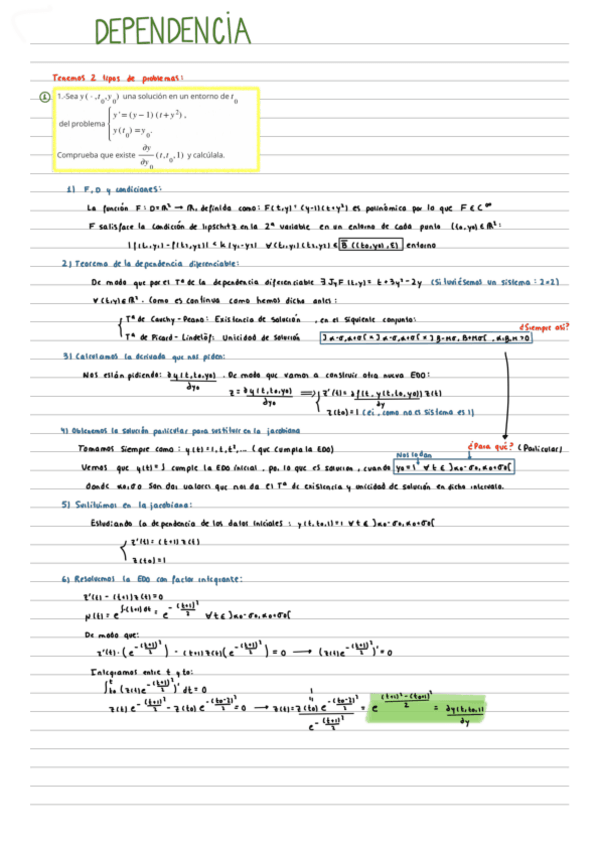 DEPENDENCIA
Tenemos 2 tipos de problemas:
① 1.-Sea y ( · , t₀, y₀) una solución en un entorno de t₀
del problema { y' = (y − 1) (t + y²) ,
y(t₀) = y₀.
Comprueba que existe ∂y/∂y₀ (t, t₀, 1) y calcúlala.
1) F, D y condiciones:
La función F: D=ℝ² → ℝ, definida como: F(t,y) = (y-1)(t+y²) es polinómica por lo que F ∈ C^∞
F satisface la condición de lipschitz en la 2ª variable en un entorno de cada punto (t₀,y₀) ∈ ℝ²:
entorno
2) Teorema de la dependencia diferenciable:
De modo que por el Tª de la dependencia diferenciable ∃ J_y F (t,y) = t + 3y² - 2y (Si tuviésemos un sistema: 2×2)
∀(t,y) ∈ ℝ². Como es continua como hemos dicho antes:
¿Siempre así?
{ Tª de Cauchy-Peano: Existencia de solución , en el siguiente conjunto:
Tª de Picard-Lindelöf: Unicidad de solución
3) Calculamos la derivada que nos piden:
Nos están pidiendo: ∂y(t,t₀,y₀)/∂y₀ . De modo que vamos a construir otra nueva EDO:
z = ∂y(t,t₀,y₀)/∂y₀ ⟹ { z'(t) = ∂f(t, y(t,t₀,y₀))/∂y z(t)
z(t₀) = 1 (ei, como no es sistema es 1)
4) Obtenemos la solución particular para sustituir en la jacobiana
Tomamos siempre como: y(t) = 1, t, t²,... (que cumpla la EDO) ¿Para qué? (Particular)
Nos lo dan
Vemos que y(t)=1 cumple la EDO inicial, por lo que es solución, cuando y₀=1 ∀ t ∈ ]α₀-σ₀, α₀+σ₀[
donde α₀, σ₀ son dos valores que nos da el Tª de existencia y unicidad de solución en dicho intervalo.
5) Sustituimos en la jacobiana:
Estudiando la dependencia de los datos iniciales: y(t,t₀,1)=1 ∀ t ∈ ]α₀-σ₀, α₀+σ₀[
{ z'(t) = (t+1) z(t)
z(t₀)=1
6) Resolvemos la EDO con factor integrante:
z'(t) - (t+1)z(t) = 0
μ(t) = e^{∫-(t+1)dt} = e^{-(t+1)²/2} ∀ t ∈ ]α₀-σ₀, α₀+σ₀[
De modo que:
z'(t)·(e^{-(t+1)²/2}) - (t+1)z(t)(e^{-(t+1)²/2}) = 0 ⟶ (z(t)e^{-(t+1)²/2})' = 0
Integramos entre t y t₀:
∫_{t₀}^{t} (z(t)e^{-(t+1)²/2})' dt = 0